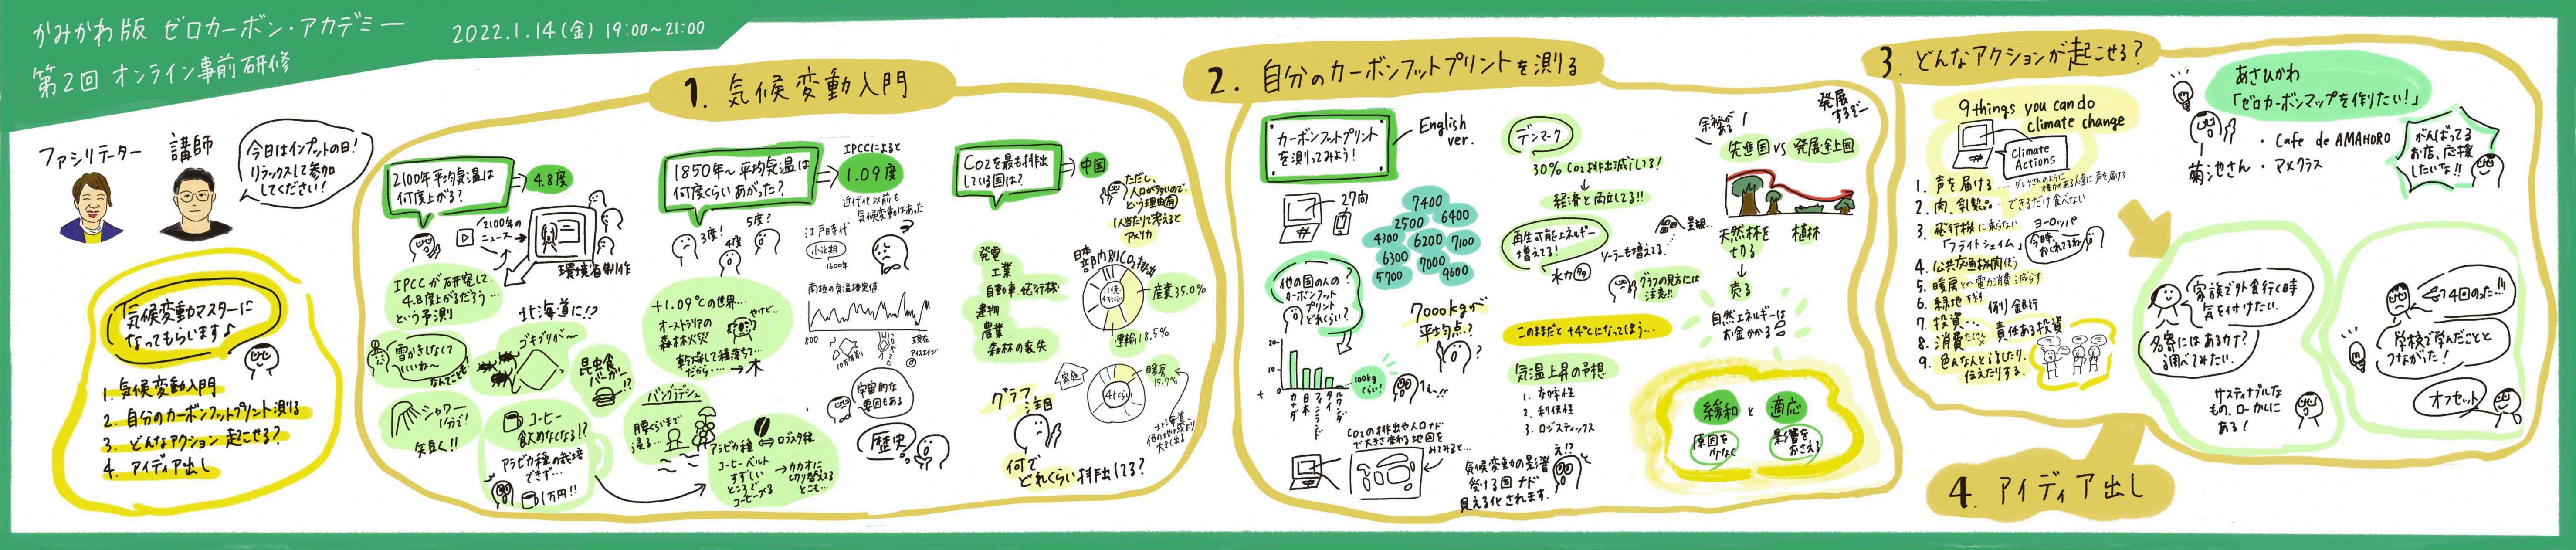 かみかわ版 ゼロカーボン・アカデミー
第2回 オンライン事前研修
2022.1.14(金) 19:00~21:00
ファシリテーター
講師
今日はインプットの日!
リラックスして参加
してください!
気候変動マスターに
なってもらいます♪
1. 気候変動入門
2. 自分のカーボンフットプリント測る
3. どんなアクション起こせる?
4. アイディア出し
1. 気候変動入門
2100年平均気温は
何度上がる?
4.8度
2100年の
ニュース
環境省制作
IPCCが研究して
4.8度上がるだろう…
という予測
雪かきしなくて
いいね〜
なんてことも
北海道に!?
ゴキブリが〜
昆虫食
バーガー
!?
シャワー
1分で!
短く!!
コーヒー
飲めなくなる!?
アラビカ種の栽培
できず…
1万円!!
1850年~平均気温は
何度くらいあがった?
IPCCによると
1.09度
3度!
4度
5度?
近代化以前も
気候変動はあった
江戸時代
小氷期
1600年
+1.09℃の世界…
オーストラリアの
森林火災
やけど…
乾燥して積落ちて…
だから…→木
バングラデシュ
腰くらいまで
浸る…
アラビカ種
⇔ロブスタ種
コーヒーベルト
すずしい
ところで
コーヒーつくる
→カカオに
切り替える
とこも…
南極の気温推定値
800
宇宙的な
要因もある
歴史
CO2を最も排出
している国は?
中国
ただし、
人口が多いので、
という理由(有)
1人当たりで考えると
アメリカ
発電
工業
自動車、飛行機
建物
農業
森林の喪失
日本
部門別CO2排出
産業35.0%
運輸18.5%
家庭
暖房
15.7%
グラフ
注目
何で
どれくらい排出してる?
2. 自分のカーボンフットプリントを測る
カーボンフットプリント
を測ってみよう!
English
ver.
27問
7400
2500
6400
4300
6200
7100
6300
7000
5700
9600
他の国の人の
カーボンフット
プリント
どれくらい?
7000kgが
平均点?
20
10
+
カナダ
日本
フィンランド
タイ
ルワンダ
100kg
くらい!
え…!!
CO2の排出や人口ナド
で大きさ変わる地図を
みてみると…
気候変動の影響
受ける国ナド
見える化されます。
え!?
デンマーク
30% CO2排出減らしてる!
経済と両立してる!!
再生可能エネルギー
増えてる!
ソーラーも増えてる…
水力
景観…
グラフの見方には
注意!!
このままだと+4℃になってしまう…
気温上昇の予想
1. 有効性
2. 利便性
3. ロジスティックス
余裕が
ある
発展
するぞー
先進国 vs 発展途上国
天然林を
切る
売る
植林
自然エネルギーは
お金かかる
緩和と適応
原因を
少なく
影響を
おさえる
3. どんなアクションが起こせる?
9 things you can do
climate change
Climate
Actions
1. 声を届ける…グレタさんのように
権力のある人達に声を届ける
2. 肉、乳製品…できるだけ食べない
3. 飛行機に乗らない
「フライトシェイム」
ヨーロッパ
4. 公共交通機関使う
5. 暖房とか電力消費減らす
6. 緑地
7. 投資…
例)銀行
責任ある投資
8. 消費
9. 色んなとこるしたり、
伝えたりする。
あさひかわ
「ゼロカーボンマップを作りたい!」
菊池さん
・Cafe de AMAHORO
・アメクラス
がんばってる
お店、応援
したいな!!
家族で外食行く時
気を付けたい。
名寄にはあるカナ?
調べてみたい。
サステイナブルな
もの、ローカルに
ある!
学校で学んだことと
つながった!
オフセット
4. アイディア出し